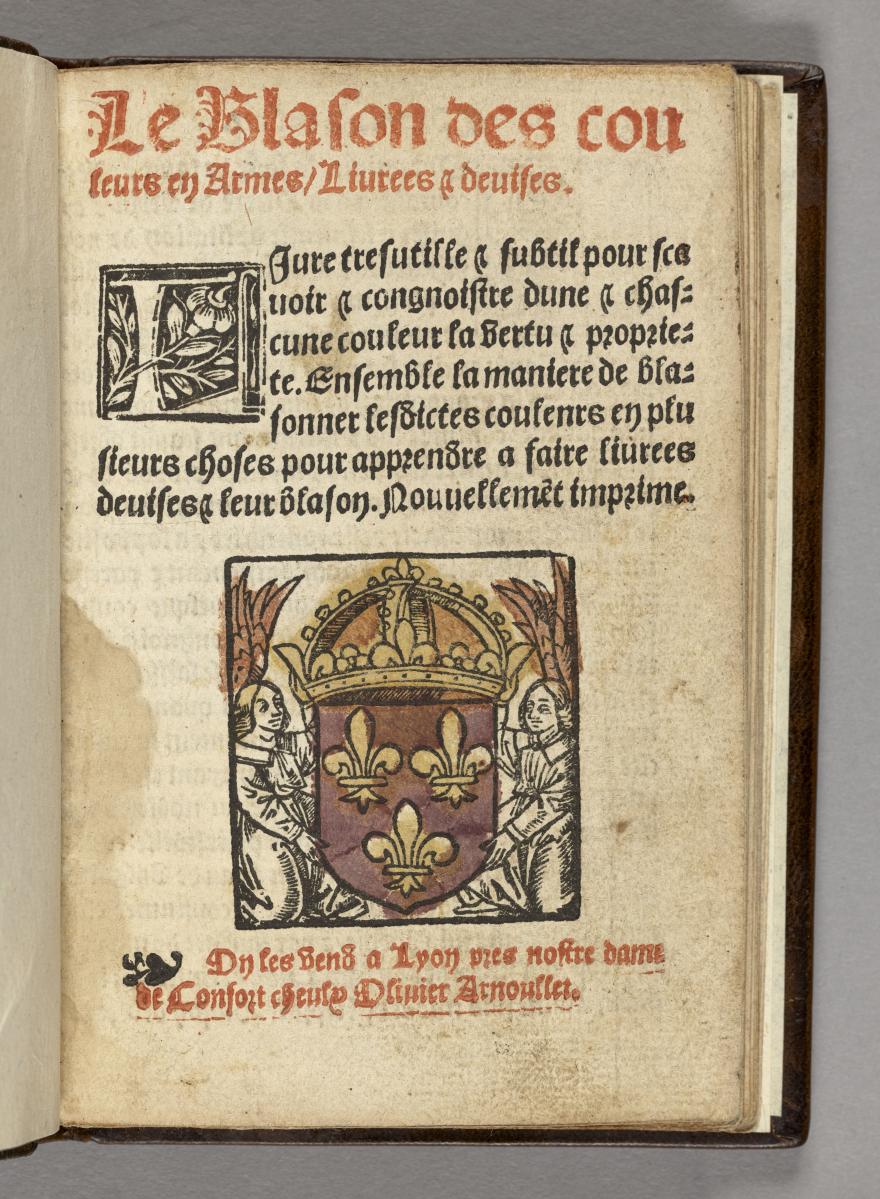 Le Blason des cou
leurs en Armes/Liurees ⁊ deuises.
LJure tresutille ⁊ subtil pour sca
uoir ⁊ congnoistre dune ⁊ chas⸗
cune couleur la vertu ⁊ proprie⸗
te. Ensemble la maniere de bla⸗
sonner lesdictes coulenrs en plu
sieurs choses pour apprendre a faire liurees
deuises⁊ leur blason. Nouuellemēt imprime.
On les vend a Lyon pres nostre dame
de Confort cheulx Oliuier Arnoullet.